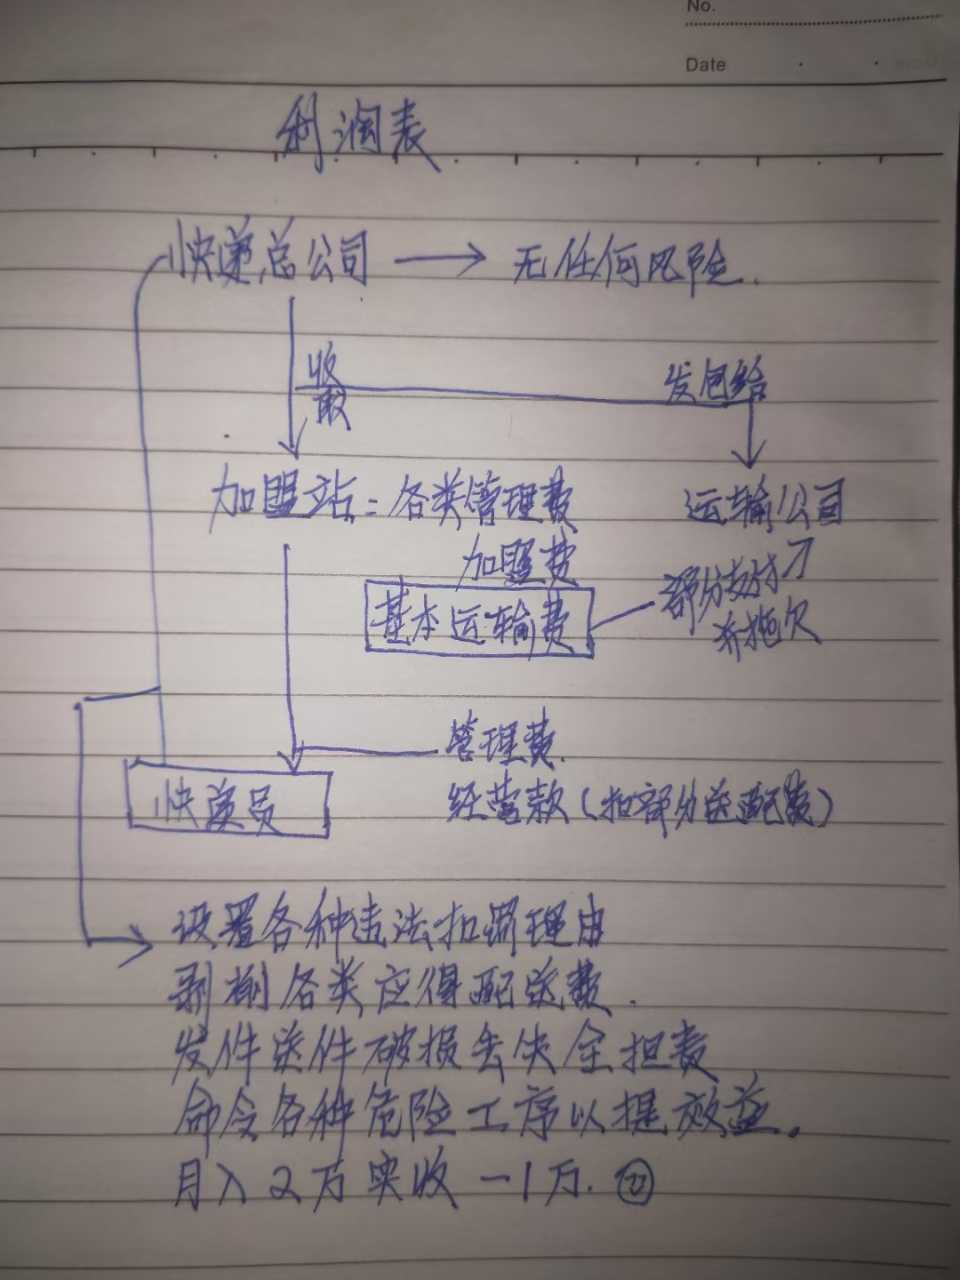 No.
Date
利润表
快递总公司 → 无任何风险.
收取
发包给
加盟站: 各类管理费
运输公司
加盟费
基本运输费
部分支付了
并拖欠
管理费.
经营款(扣部分送配费)
快递员
设置各种违法扣罚理由
剥削各类应得配送费.
发件送件破损丢失全担责
命令各种危险工序以提效益.
月入2万实收-1万.